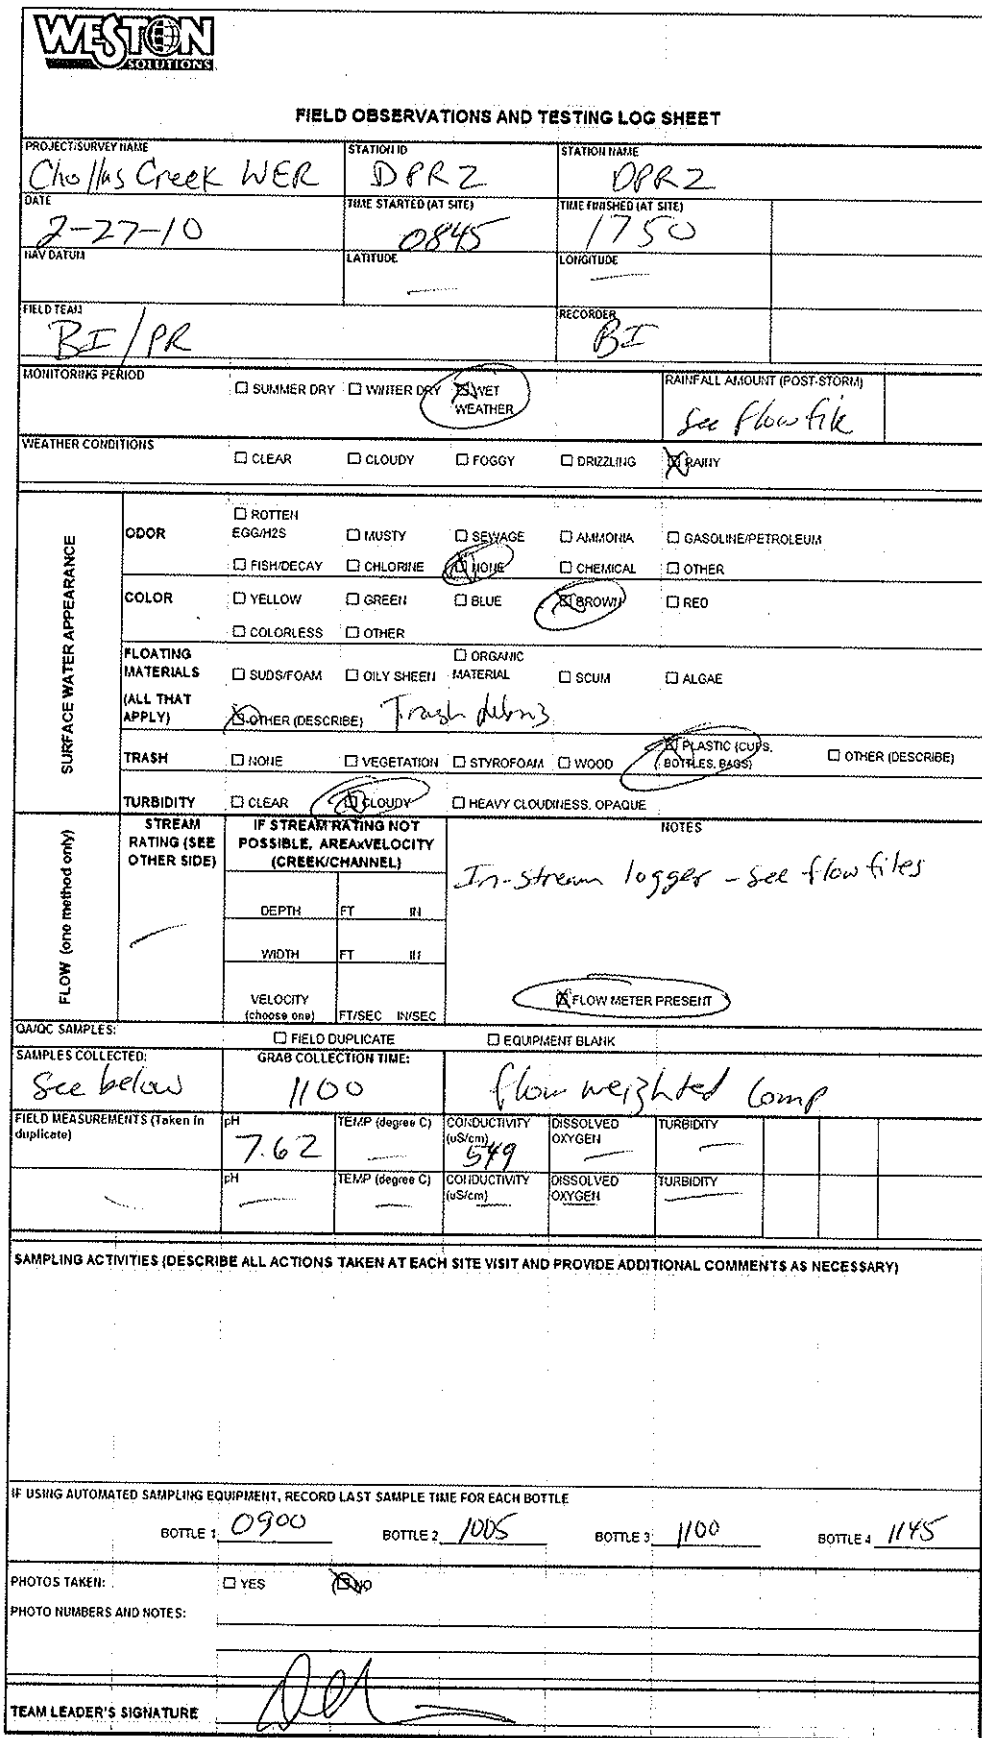 WESTON
SOLUTIONS
FIELD OBSERVATIONS AND TESTING LOG SHEET
PROJECT/SURVEY NAME STATION ID STATION NAME
Chollas Creek WER DPR2 DPR2
DATE TIME STARTED (AT SITE) TIME FINISHED (AT SITE)
2-27-10 0845 1750
NAV DATUM LATITUDE LONGITUDE
— —
FIELD TEAM RECORDER
BI/PR BI
MONITORING PERIOD ☐ SUMMER DRY ☐ WINTER DRY ☒ WET WEATHER RAINFALL AMOUNT (POST-STORM)
See flow file
WEATHER CONDITIONS ☐ CLEAR ☐ CLOUDY ☐ FOGGY ☐ DRIZZLING ☒ RAINY
SURFACE WATER APPEARANCE
ODOR ☐ ROTTEN EGG/H2S ☐ MUSTY ☐ SEWAGE ☐ AMMONIA ☐ GASOLINE/PETROLEUM
☐ FISH/DECAY ☐ CHLORINE ☒ NONE ☐ CHEMICAL ☐ OTHER
COLOR ☐ YELLOW ☐ GREEN ☐ BLUE ☒ BROWN ☐ RED
☐ COLORLESS ☐ OTHER
FLOATING MATERIALS ☐ SUDS/FOAM ☐ OILY SHEEN ☐ ORGANIC MATERIAL ☐ SCUM ☐ ALGAE
(ALL THAT APPLY) ☒ OTHER (DESCRIBE) Trash debris
TRASH ☐ NONE ☐ VEGETATION ☐ STYROFOAM ☐ WOOD ☒ PLASTIC (CUPS, BOTTLES, BAGS) ☐ OTHER (DESCRIBE)
TURBIDITY ☐ CLEAR ☒ CLOUDY ☐ HEAVY CLOUDINESS, OPAQUE
FLOW (one method only)
STREAM RATING (SEE OTHER SIDE) IF STREAM RATING NOT POSSIBLE, AREAxVELOCITY (CREEK/CHANNEL) NOTES
In-stream logger - see flow files
—
DEPTH FT IN
WIDTH FT IN
VELOCITY (choose one) FT/SEC IN/SEC ☒ FLOW METER PRESENT
QA/QC SAMPLES: ☐ FIELD DUPLICATE ☐ EQUIPMENT BLANK
SAMPLES COLLECTED: GRAB COLLECTION TIME:
See below 1100 flow weighted comp
FIELD MEASUREMENTS (Taken in duplicate) pH TEMP (degree C) CONDUCTIVITY (uS/cm) DISSOLVED OXYGEN TURBIDITY
7.62 — 549 — —
pH TEMP (degree C) CONDUCTIVITY (uS/cm) DISSOLVED OXYGEN TURBIDITY
— — — — — —
SAMPLING ACTIVITIES (DESCRIBE ALL ACTIONS TAKEN AT EACH SITE VISIT AND PROVIDE ADDITIONAL COMMENTS AS NECESSARY)
IF USING AUTOMATED SAMPLING EQUIPMENT, RECORD LAST SAMPLE TIME FOR EACH BOTTLE
BOTTLE 1 0900 BOTTLE 2 1005 BOTTLE 3 1100 BOTTLE 4 1145
PHOTOS TAKEN: ☐ YES ☒ NO
PHOTO NUMBERS AND NOTES:
TEAM LEADER'S SIGNATURE